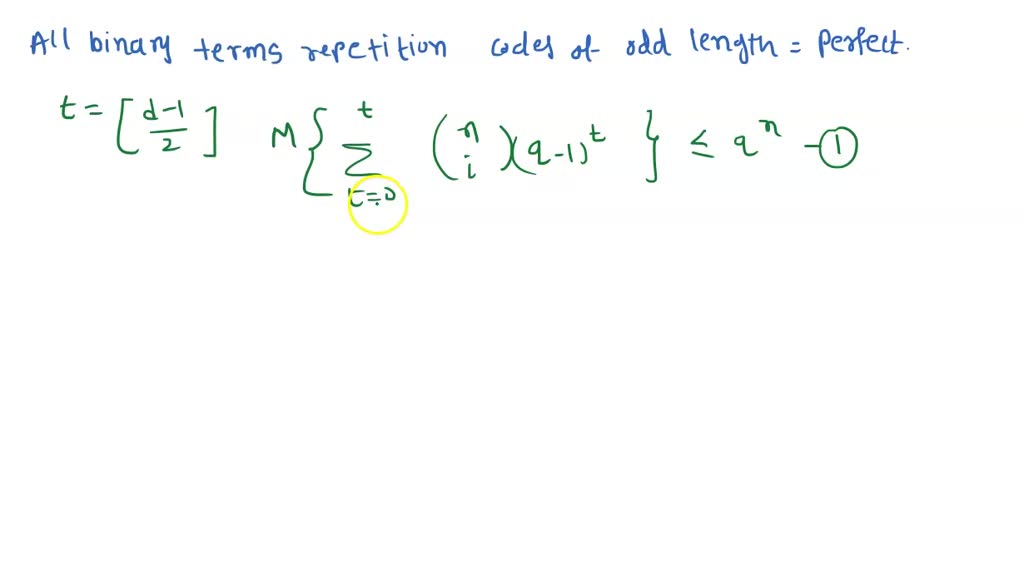 All binary terms repetition codes of odd length = perfect.
t = [d-1/2] M{ t∑t=0 (n i)(q-1)^t } ≤ q^n -①